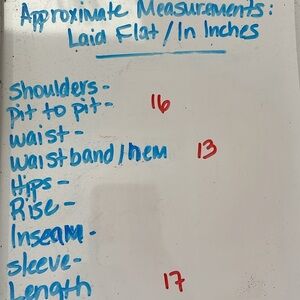 Approximate Measurements:
Laid Flat / In Inches
Shoulders -
pit to pit - 16
waist -
waistband/hem 13
Hips -
Rise -
Inseam -
sleeve -
Length 17